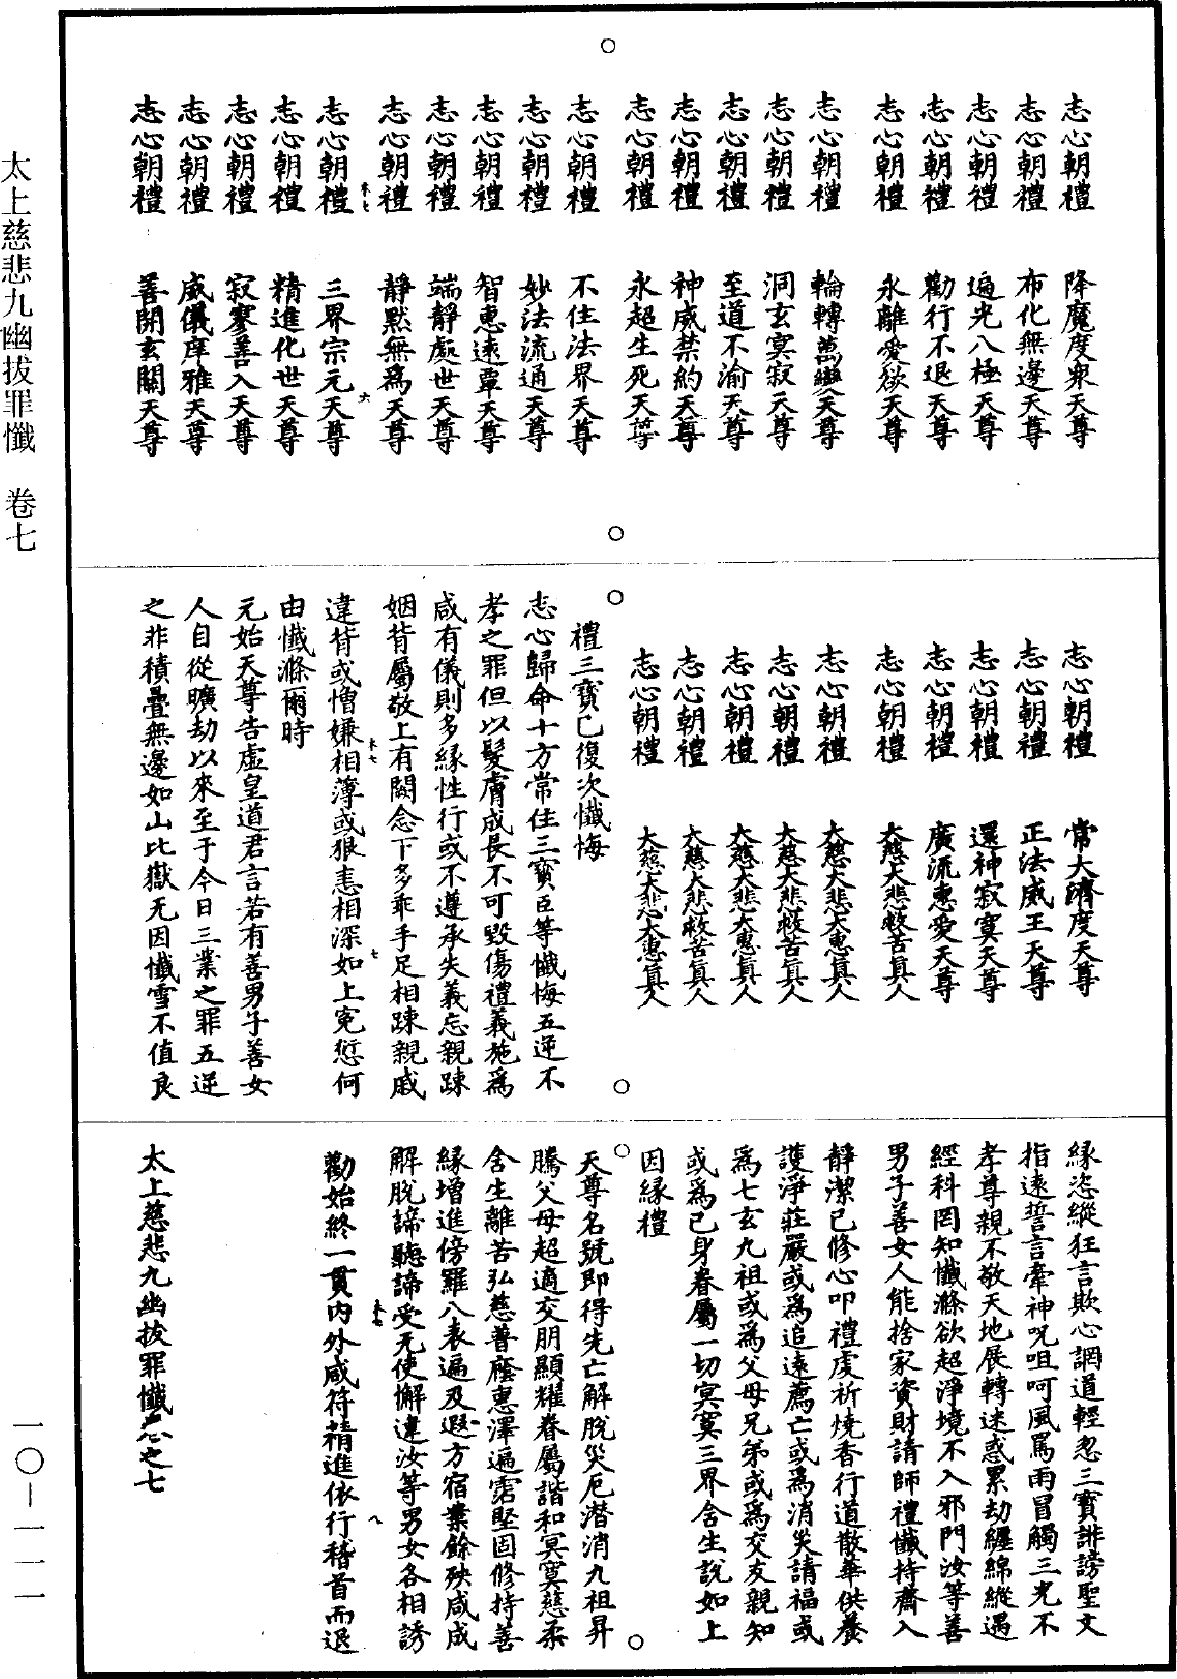 志心朝禮　降魔度衆天尊
志心朝禮　布化無邊天尊
志心朝禮　遍光八極天尊
志心朝禮　勸行不退天尊
志心朝禮　永離愛欲天尊
志心朝禮　輪轉萬變天尊
志心朝禮　洞玄冥寂天尊
志心朝禮　至道不渝天尊
志心朝禮　神威禁約天尊
志心朝禮　永超生死天尊
志心朝禮　不住法界天尊
志心朝禮　妙法流通天尊
志心朝禮　智惠遠覃天尊
志心朝禮　端靜處世天尊
志心朝禮　靜默無爲天尊
志心朝禮　三界宗元天尊
志心朝禮　精進化世天尊
志心朝禮　寂寥善入天尊
志心朝禮　威儀庠雅天尊
志心朝禮　善開玄關天尊
志心朝禮　常大濟度天尊
志心朝禮　正法威王天尊
志心朝禮　還神寂寞天尊
志心朝禮　廣流惠愛天尊
志心朝禮　大慈大悲救苦眞人
志心朝禮　大慈大悲大惠眞人
志心朝禮　大慈大悲救苦眞人
志心朝禮　大慈大悲大惠眞人
志心朝禮　大慈大悲救苦眞人
志心朝禮　大慈大悲大惠眞人
禮三寶已復次懺悔
志心歸命十方常住三寶臣等懺悔五逆不
孝之罪但以髮膚成長不可毀傷禮義施爲
咸有儀則多緣性行或不遵承失義忘親踈
姻背屬敬上有闕念下多乖手足相踈親戚
違背或憎嫌相薄或狠恚相深如上寃愆何
由懺滌爾時
元始天尊告虛皇道君言若有善男子善女
人自從曠劫以來至于今日三業之罪五逆
之非積疊無邊如山比嶽无因懺雪不值良
緣恣縱狂言欺心調道輕忽三寶誹謗聖文
指遠誓言牽神呪咀呵風罵雨冒觸三光不
孝尊親不敬天地展轉迷惑累劫纏綿縱遇
經科罔知懺滌欲超淨境不入邪門汝等善
男子善女人能捨家資財請師禮懺持齋入
靜潔已修心叩禮虔祈燒香行道散華供養
護淨莊嚴或爲追遠薦亡或爲消災請福或
爲七玄九祖或爲父母兄弟或爲交友親知
或爲己身眷屬一切冥寞三界含生說如上
因緣禮
天尊名號即得先亡解脫災厄潛消九祖昇
騰父母超適交朋顯耀眷屬諧和冥寞慈柔
含生離苦弘慈普廕惠澤遍霑堅固修持善
緣增進傍羅八表遍及遐方宿業餘殃咸成
解脫諦聽諦受无使懈違汝等男女各相誘
勸始終一貫内外咸符精進依行稽首而退
太上慈悲九幽拔罪懺卷之七
太上慈悲九幽拔罪懺　卷七
一〇—一一一